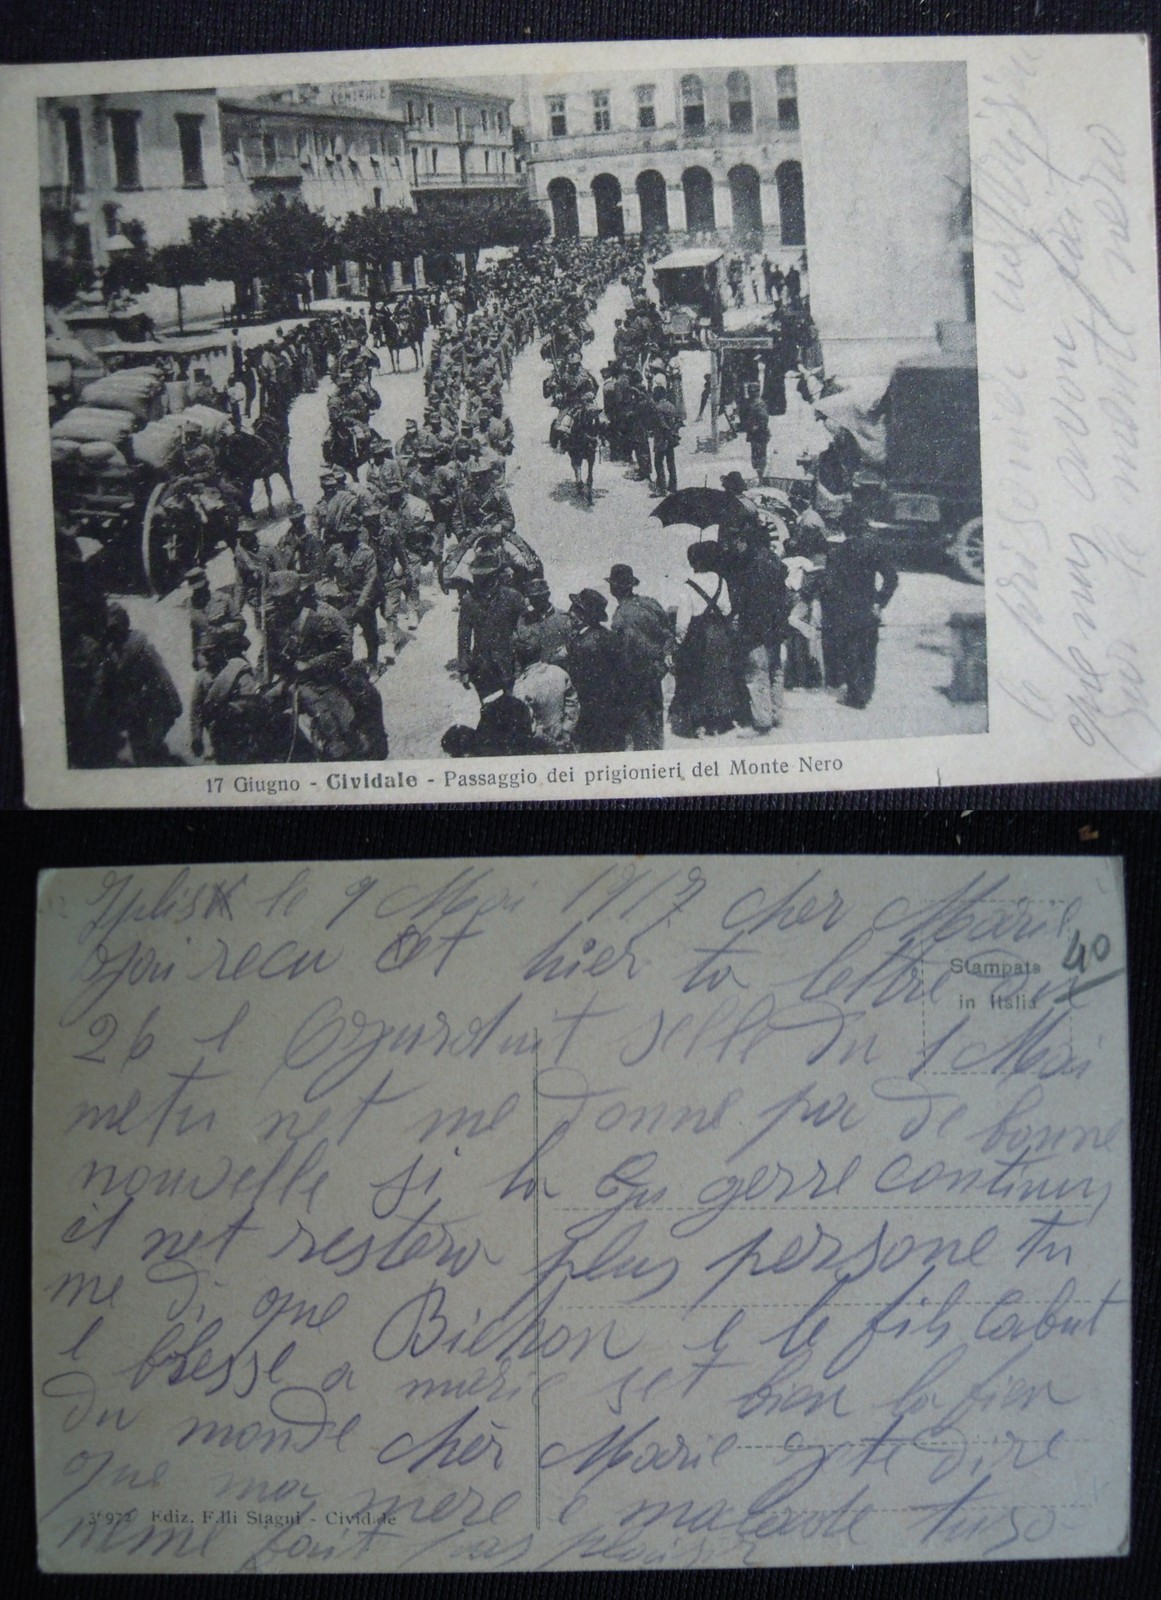 CENTRALE
17 Giugno - Cividale - Passaggio dei prigionieri del Monte Nero
le prisonnié
que nous avon fait
sur le monte nero
le 9 Mai 1917 cher Marie
jai recu et hier ta lettre du
26 e ojurduit selle du 1 Mai
me tu net me donne pa de bonne
nouvelle si la gerre continu
il net restera plus persone tu
me di que Bichon e le fils Cabut
e blesse a marie set bien la fien
du monde cher Marie je te dire
que ma mere e malade tu so
meme fait pas plaisir
Stampata
in Italia
40
36972 Ediz. F.lli Stagni - Cividale